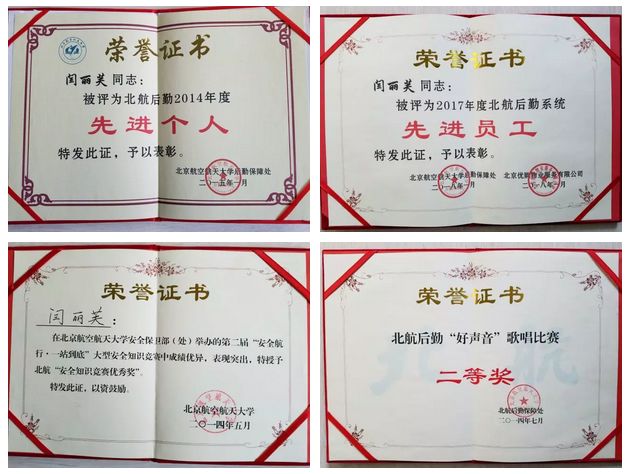 荣誉证书
闫丽芙同志：
被评为北航后勤2014年度
先进个人
特发此证，予以表彰。
北京航空航天大学后勤保障处
二〇一五年一月
荣誉证书
闫丽芙同志：
被评为2017年度北航后勤系统
先进员工
特发此证，予以表彰。
北京航空航天大学后勤保障处
二〇一八年一月
二〇一八年一月
荣誉证书
闫丽芙：
在北京航空航天大学安全保卫部（处）举办的第二届“安全航
行·一站到底”大型安全知识竞赛中成绩优异，表现突出，特授予
北航“安全知识竞赛优秀奖”。
特发此证，以资鼓励。
北京航空航天大学
二〇一四年五月
荣誉证书
北航后勤“好声音”歌唱比赛
二等奖
北航后勤保障处
二〇一四年七月